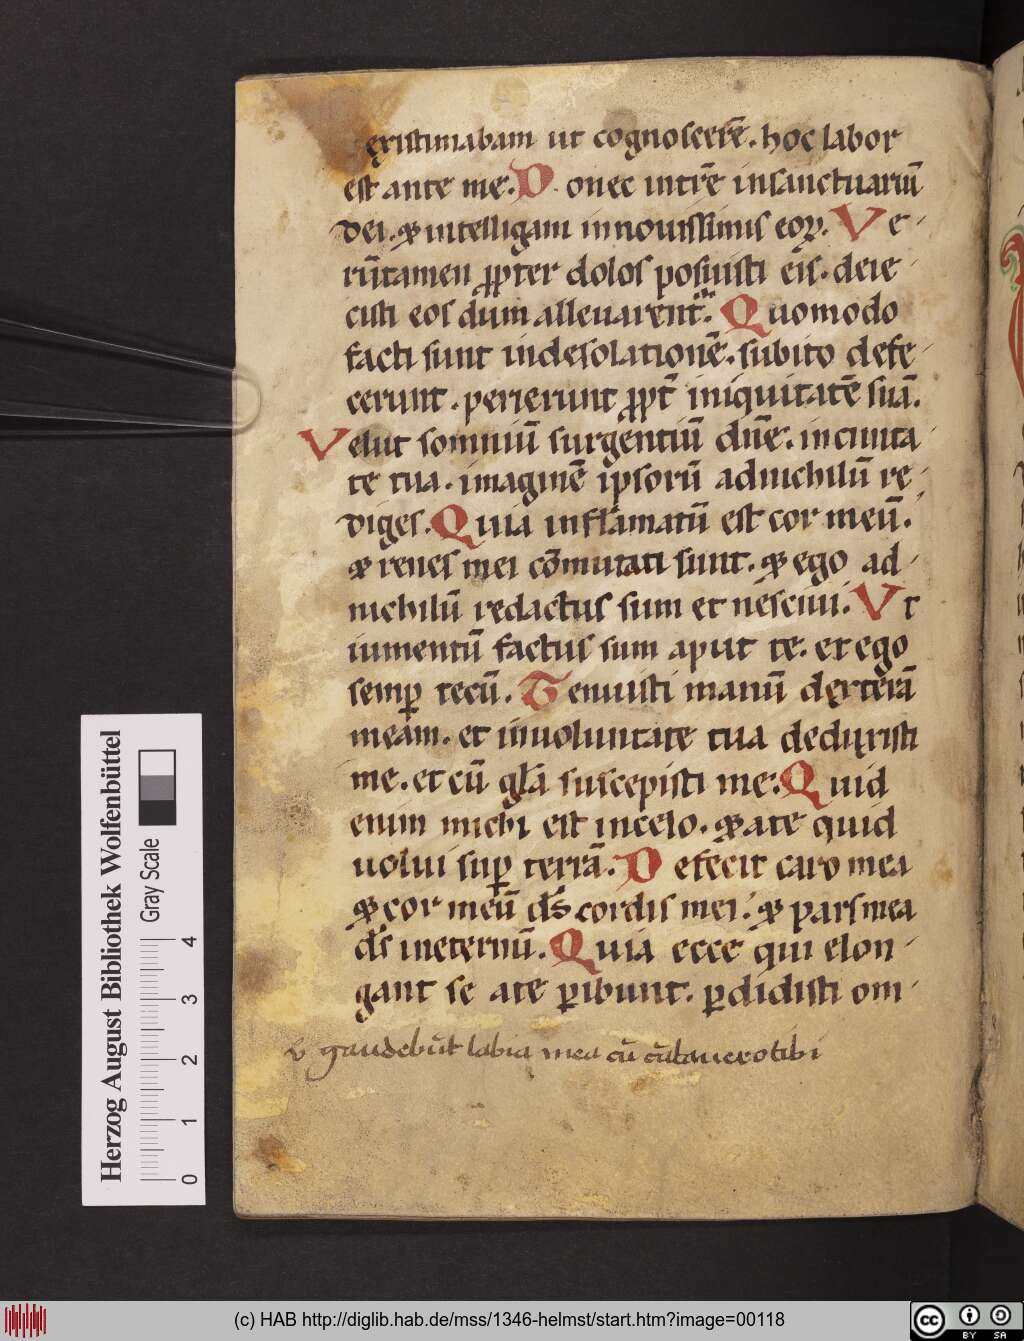 exiſtimabam ut cognoſcerē. hoc labor
eſt ante me. Donec intrē inſanctuariū
dei. & intelligam innouiſſimis eoꝝ. Ve-
rūtamen ꝓpter dolos poſuiſti eis. deie
ciſti eos dum alleuarent᷑. Quomodo
facti ſunt indeſolationē. ſubito defe-
cerunt. perierunt ꝓpt̄ iniquitatē ſuā.
Velut ſomniū ſurgentiū dn̄e. inciuita-
te tua. imaginē ipſorū adnichilū re-
diges. Quia inflāmatū eſt cor meū.
& renes mei cōmutati ſunt. & ego ad-
nichilū redactus ſum et neſciui. Vt
iumentū factus ſum aput te. et ego
ſemꝑ tecū. Tenuiſti manū dexterā
meam. et inuoluntate tua deduxiſti
me. et cū gl̄a ſuſcepiſti me. Quid
enim michi eſt incelo. & ate quid
uolui ſuꝑ terrā. Defecit caro mea
& cor meū ds̄ cordis mei. & pars mea
ds̄ ineternū. Quia ecce qui elon-
gant ſe ate ꝑibunt. ꝑdidiſti om-
gaudebūt labia mea cū cātauero tibi
Herzog August Bibliothek Wolfenbüttel
Gray Scale
0 1 2 3 4
(c) HAB http://diglib.hab.de/mss/1346-helmst/start.htm?image=00118
cc BY SA